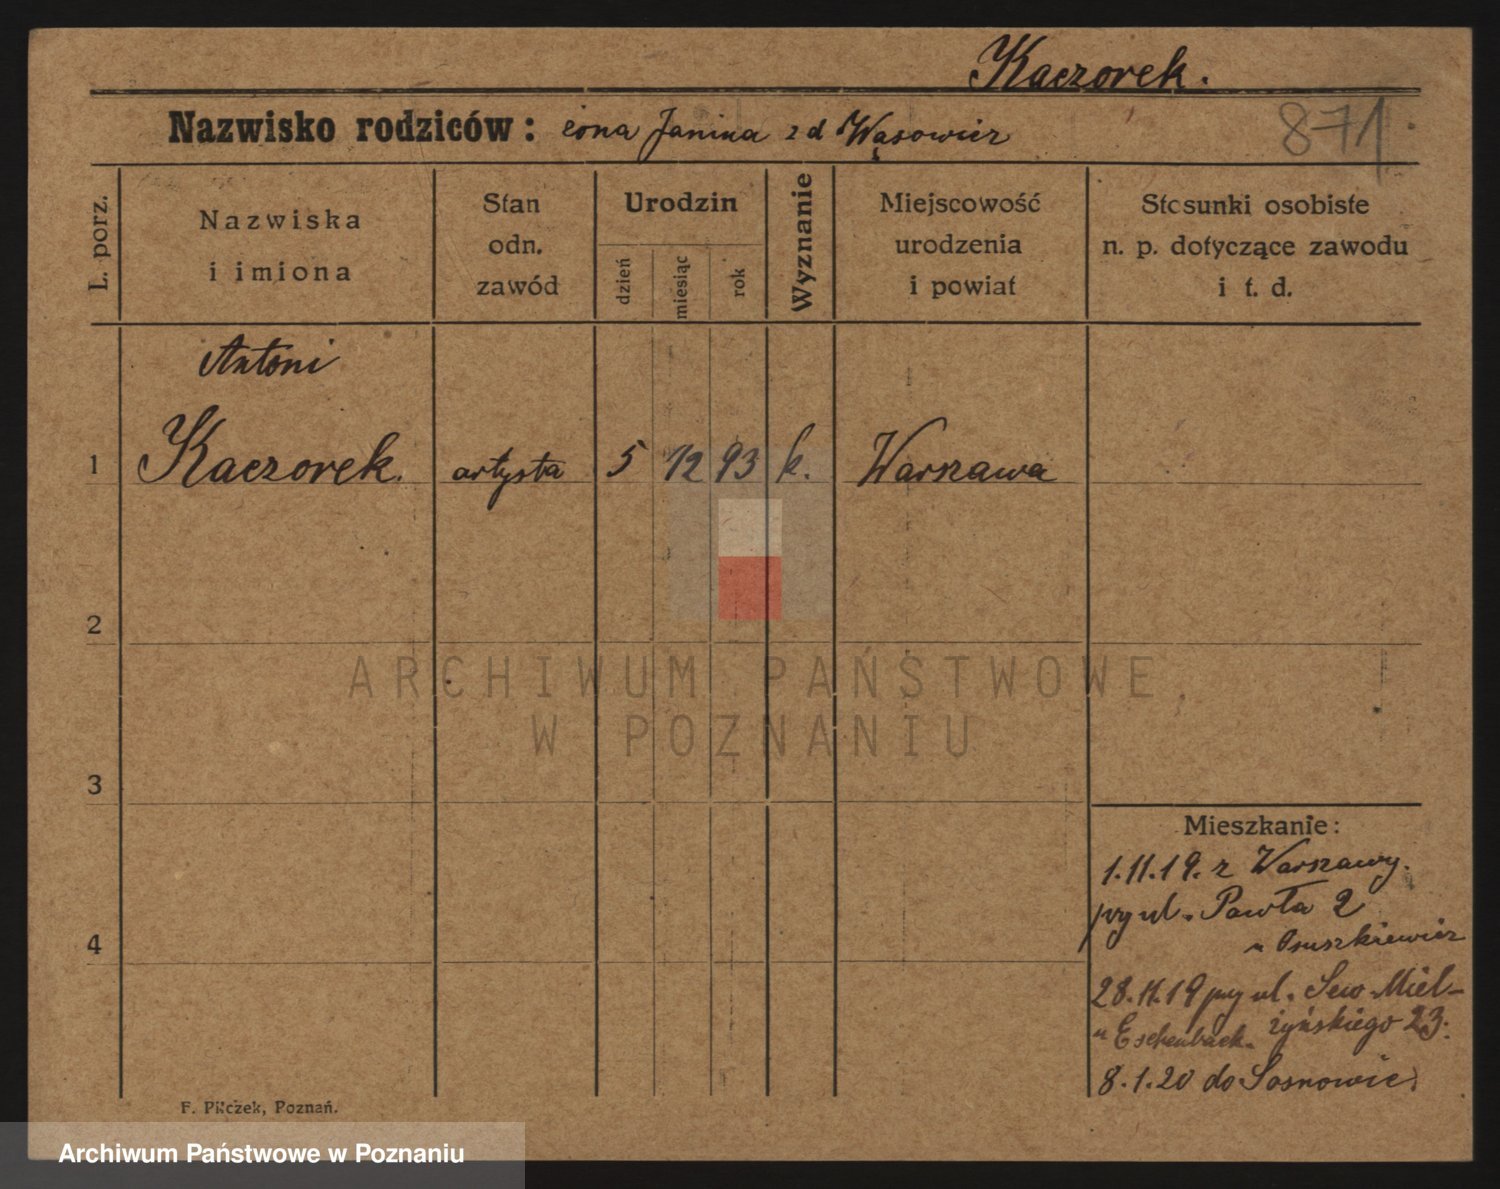 Kaczorek.
871
Nazwisko rodziców: żona Janina zd Wąsowicz
L. porz.
Nazwiska
i imiona
Stan
odn.
zawód
Urodzin
dzień
miesiąc
rok
Wyznanie
Miejscowość
urodzenia
i powiat
Stosunki osobiste
n. p. dotyczące zawodu
i t. d.
Antoni
1 Kaczorek. artysta 5 12 93 k. Warszawa
2
ARCHIWUM PAŃSTWOWE
W POZNANIU
3
Mieszkanie:
1.11.19. z Warszawy.
py ul. Pawła 2
u Osuszkiewicz
4
28.11.19 py ul. Sew Miel-
żyńskiego 23.
u Eschenbach.
8.1.20 do Sosnowic
F. Pilczek, Poznań.
Archiwum Państwowe w Poznaniu